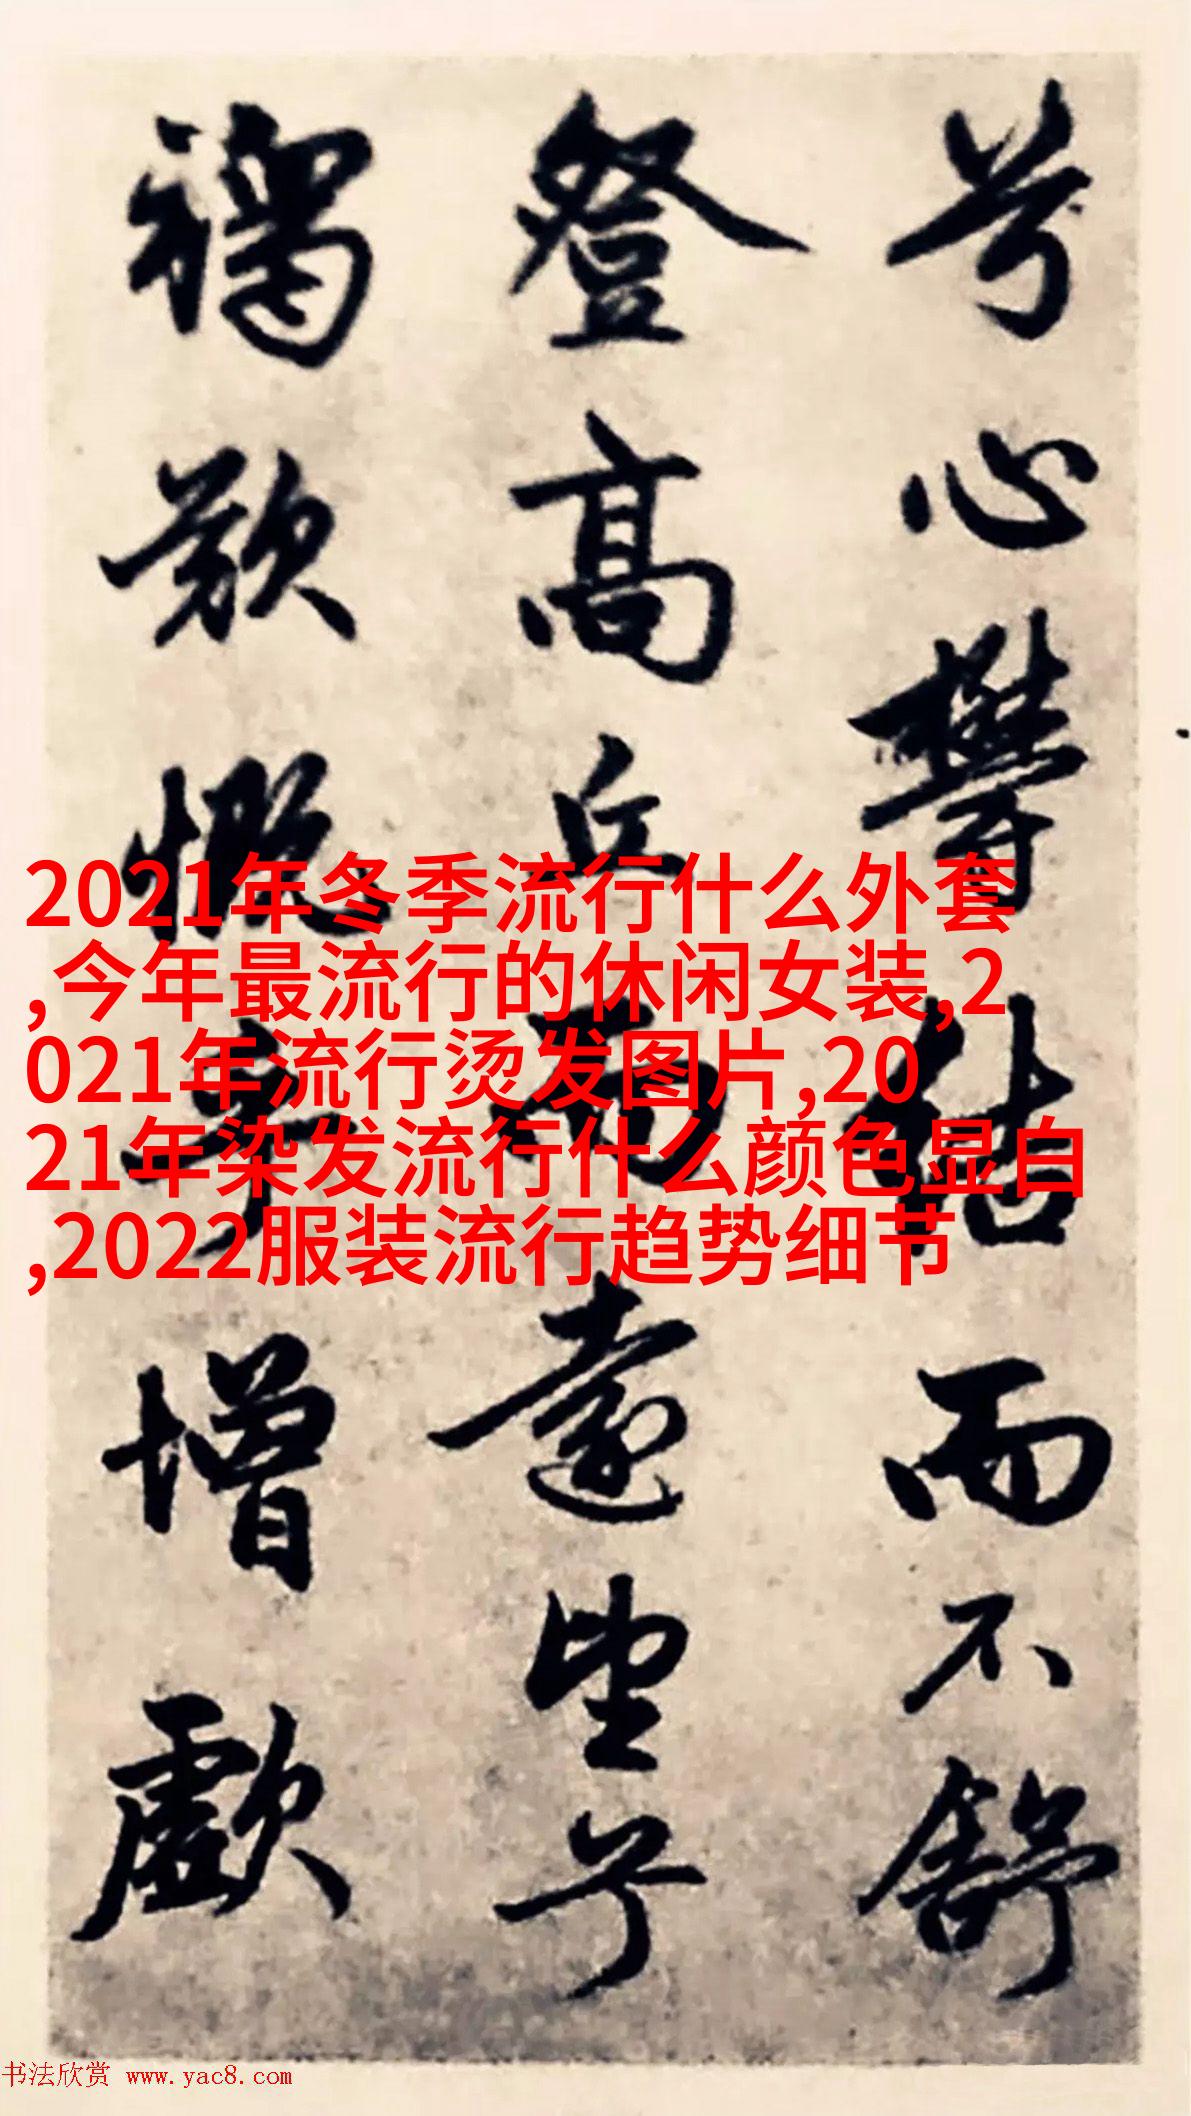 兮心欝結而不舒
登高丘而遠望兮
歎慨增歔
2021年冬季流行什么外套
,今年最流行的休闲女装,2
021年流行烫发图片,20
21年染发流行什么颜色显白
,2022服装流行趋势细节
书法欣赏 www.yac8.com